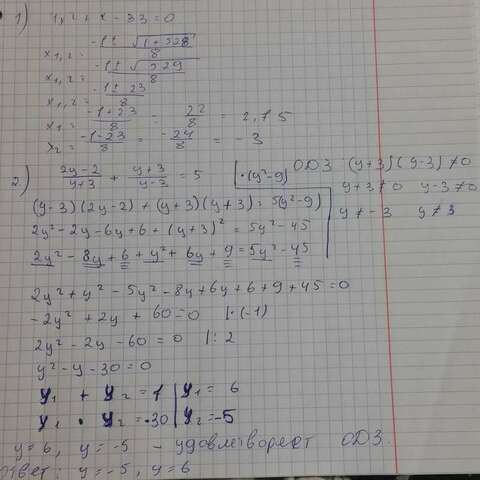 1) 4x² + x - 33 = 0
x₁,₂ = -1 ± √1+528 / 8
x₁,₂ = -1 ± √529 / 8
x₁,₂ = -1 ± 23 / 8
x₁ = -1+23 / 8 = 22 / 8 = 2,75
x₂ = -1-23 / 8 = -24 / 8 = -3
2) 2y-2 / y+3 + y+3 / y-3 = 5 |·(y²-9) ОДЗ (y+3)(y-3) ≠ 0
y+3 ≠ 0 y-3 ≠ 0
(y-3)(2y-2) + (y+3)(y+3) = 5(y²-9)
y ≠ -3 y ≠ 3
2y² - 2y - 6y + 6 + (y+3)² = 5y² - 45
2y² - 8y + 6 + y² + 6y + 9 = 5y² - 45
2y² + y² - 5y² - 8y + 6y + 6 + 9 + 45 = 0
-2y² + 2y + 60 = 0 |·(-1)
2y² - 2y - 60 = 0 |: 2
y² - y - 30 = 0
y₁ + y₂ = 1 | y₁ = 6
y₁ · y₂ = -30 | y₂ = -5
y = 6, y = -5 - удовлетворяет ОДЗ.
ответ: y = -5, y = 6